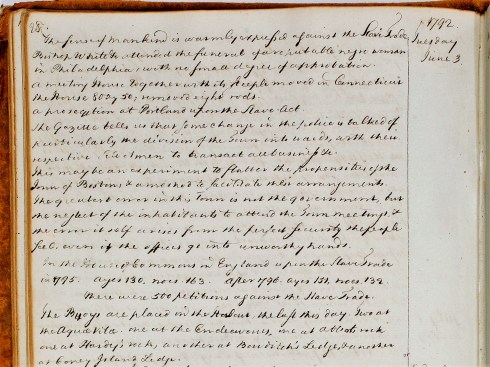 28.
The sense of mankind is warmly expressed against the Slave Trade
Bishop White attended the funeral of a reputable negro woman
in Philadelphia, with no small degree of approbation.
A meeting House together with its steeple moved in Connecticut
the House 80 by 50, removed eight rods.
a prosecution at Portland upon the Slave Act.
The Gazette tells us that some change in the police is talked of
particularly the division of the Town into wards, with their
respective Electmen to transact all business &c.
This may be an experiment to flatter the propensities of the
Town of Boston & a method to facilitate their arrangements
The greatest error in this Town is not the government, but
the neglect of the inhabitants to attend the Town meetings, &
the error itself arises from the perfect security the people
feel, even if the offices go into unworthy hands.
In the House of Commons in England upon the Slave Trade
in 1795. ayes 130. noes 163. After 1796. ayes 151. noes. 132.
There were 500 petitions against the Slave Trade.
The Buoys are placed in the Harbour, the last this day. Two at
the Aqua Vitæ. one at the Endeavours, one at Abbots rock
one at Hardy's rock, another at Bowditch's Ledge, & another
at Coney Island Ledge.
1792.
Tuesday
June 3.